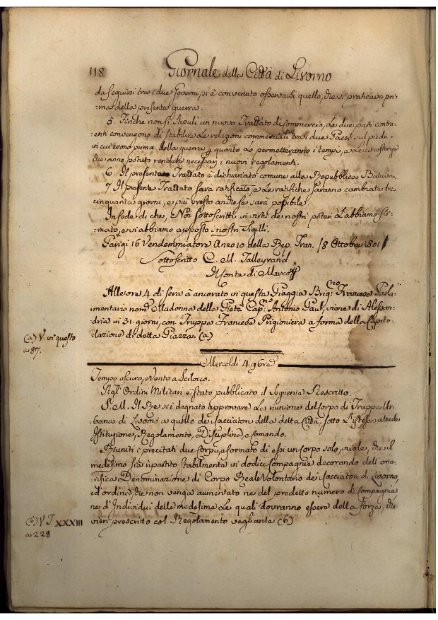 118 Giornale della Città di Livorno
da seguirsi tra i due Governi, si è convenuto osservarsi quello, che si praticava pri=
ma della presente guerra.
5. Finchè non si stipuli un nuovo Trattato di Commercio, le due parti contra=
enti convengono di stabilire le relazioni commerciali tra i due Paesi sul piede,
in cui erano prima della guerra
che avranno potuto rendere necessari i nuovi regolamenti.
6. Il presente Trattato è dichiarato comune alla Repubblica Batava
7. Il presente Trattato sarà ratificato, e le ratifiche saranno cambiate tra
cinquanta giorni, e più presto anche se sarà possibile.
In fede di che, Noi sottoscritti in virtù de nostri poteri l'abbiamo fir=
mato, e vi abbiamo apposto i nostri Sigilli.
Parigi 16 Vendemmiatore Anno 10 della Rep. Fran. (8 Ottobre 1801)
Sottoscritto C. M. Talleyrand
Il Conte di
Alle ore 4 di sera è ancorato in questa Spiaggia Brig.no Francese Parla=
mentario nom. Madonna delle Grazie Cap.no Antonio viene di Alessan=
dria in 31 giorni, con Truppa Francese Prigioniera a forma della Capito=
lazione di detta Piazza (a)
(a) V. in questo
a 87.
Mercoldì 4 9bre
Tempo oscuro, Vento a Scilocco.
Negl' Ordini Militari è stato pubblicato il seguente Rescritto.
S. M. Il Re si è degnato approvare la riunione del Corpo di Truppa Ur=
bana di Livorno a quello dei Cacciatori della detta Città, sotto l'istessa
Istituzione, Regolamento, Disciplina, e comando.
Riuniti i precitati due Corpi, e formato di essi un corpo solo, vuole, che il
medesimo sia ripartito stabilmente in dodici Compagnie decorando dell' ono=
rifica Denominazione di Corpo Reale Volontario dei Cacciatori di Livorno,
ed ordina che non venga aumentato nè del predetto numero di Compagnie
nè d' Individui delle medesime le quali dovranno essere della forza, che
vien prescritto col Regolamento vegliante (b)
(b) V. T. XXXIII
a 228